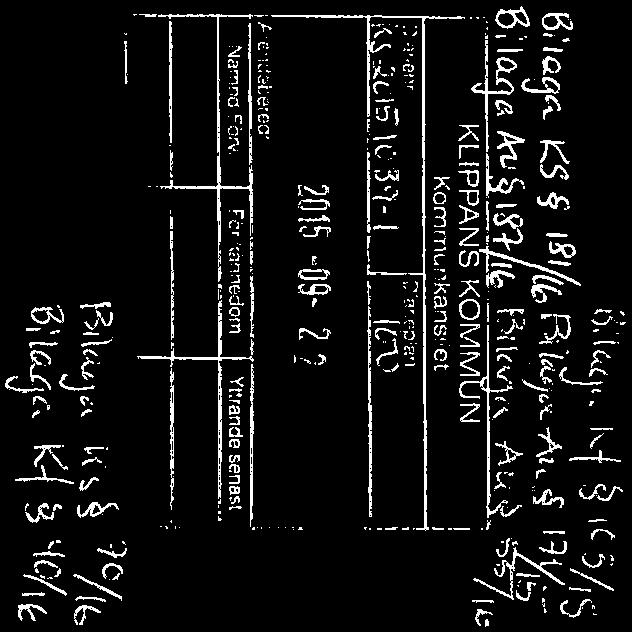 Bilaga Kf §
Bilaga KS § 181/16 Bilaga Au § 171/15
Bilaga Au § 187/16 Bilaga Au § 55/16
KLIPPANS KOMMUN
Kommunkansliet
Diarienr Diarieplan
KS 2015.1039-1
2015 -09- 22
Nämnd Förv. För kännedom Yttrande senast
Bilaga Ks § 70/16
Bilaga Kf § 40/16